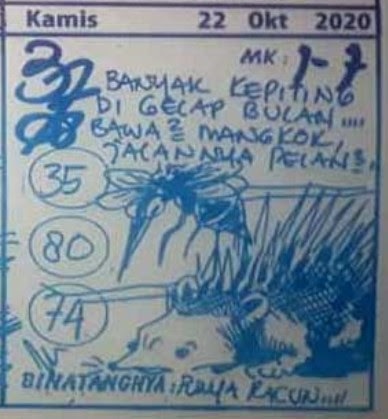 Kamis 22 Okt 2020
MK: 1-7
32 BANYAK KEPITING
DI GELAP BULAN....
BAWA2 MANGKOK,
JALANNYA PELAN2.
35
80
74
BINATANGNYA: PUNYA RACUN....